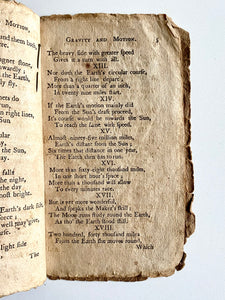 GRAVITY AND MOTION. 5
The heavy side with greater speed
Gives it a turn withal.
XIII.
Nor doth the Earth's circular course,
From a right line depart;
More than a quarter of an inch,
In twenty nine miles start.
XIV.
If the Earth's motion mainly did
From the Sun's draft proceed,
It's course would be towards the Sun,
To reach the same with speed.
XV.
Almost ninety-five million miles,
Earth's distant from the Sun;
Six times that distance in one year,
The Earth then has to run.
XVI.
More than sixty-eight thousand miles,
In one short hour's space;
More than a thousand will allow
To every minutes race.
XVII.
But is yet more wonderful,
And speaks the Maker's skill;
The Moon runs steady round the Earth,
As tho' the Earth stood still.
XVIII.
Two hundred, forty thousand miles
From the Earth she moves round;
Which
and them both,
stone,
the Sun,
fly.
gone,
night,
the day
end
Earth's dark side,
far;
well may give,
are.
light side
The